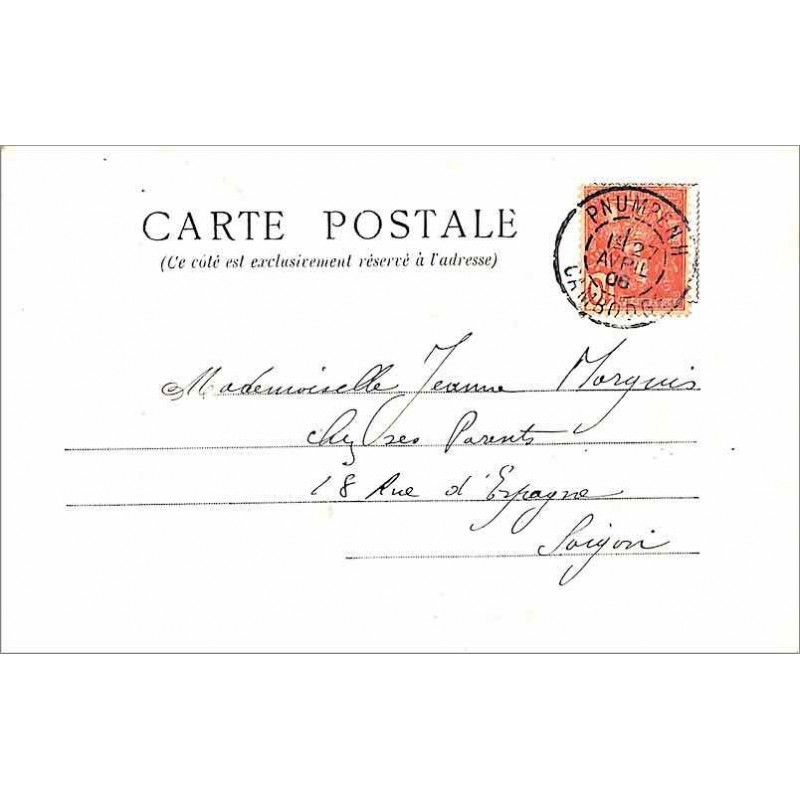 CARTE POSTALE
(Ce côté est exclusivement réservé à l'adresse)
PNUMPENH
1e 27
AVRIL
06
CAMBODGE
Mademoiselle Jeanne Marquis
chez ses Parents
18 Rue d'Espagne
Saïgon